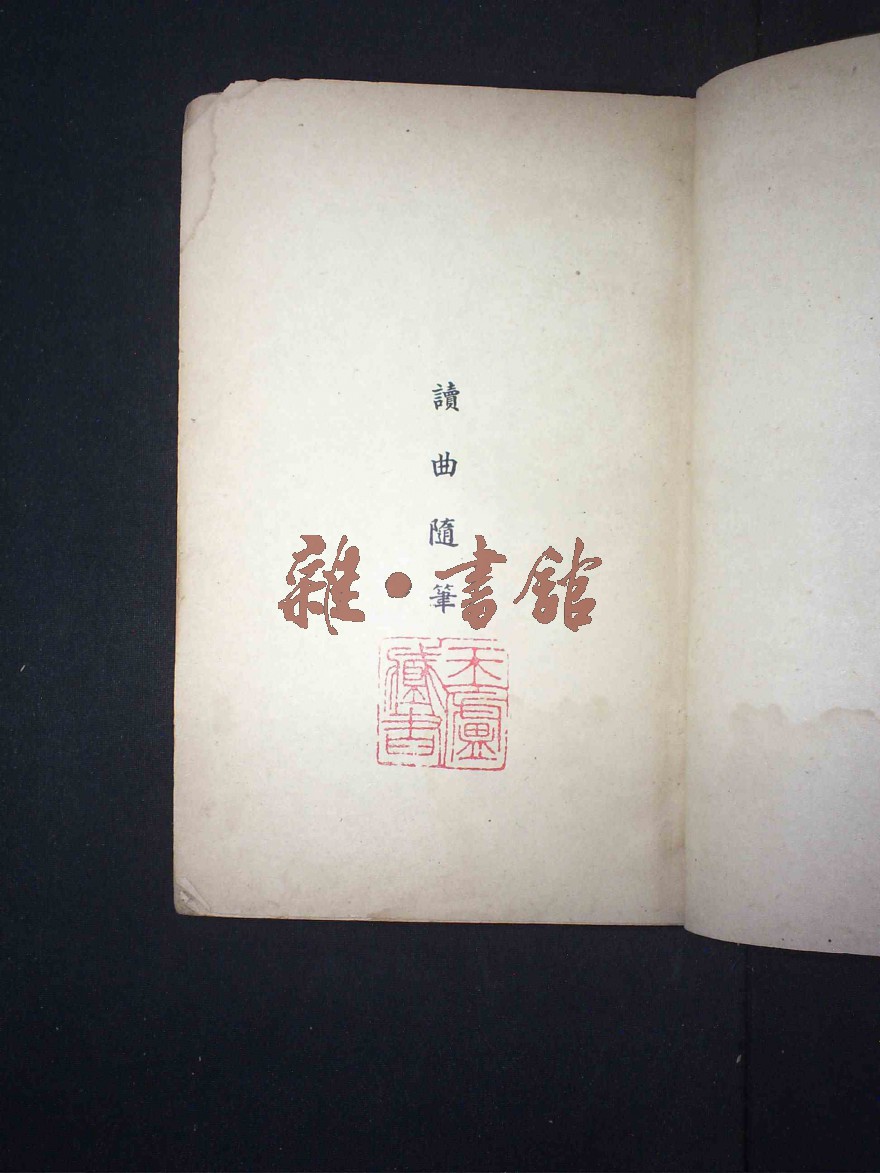 讀曲隨筆
雜·書館
天廬
藏書